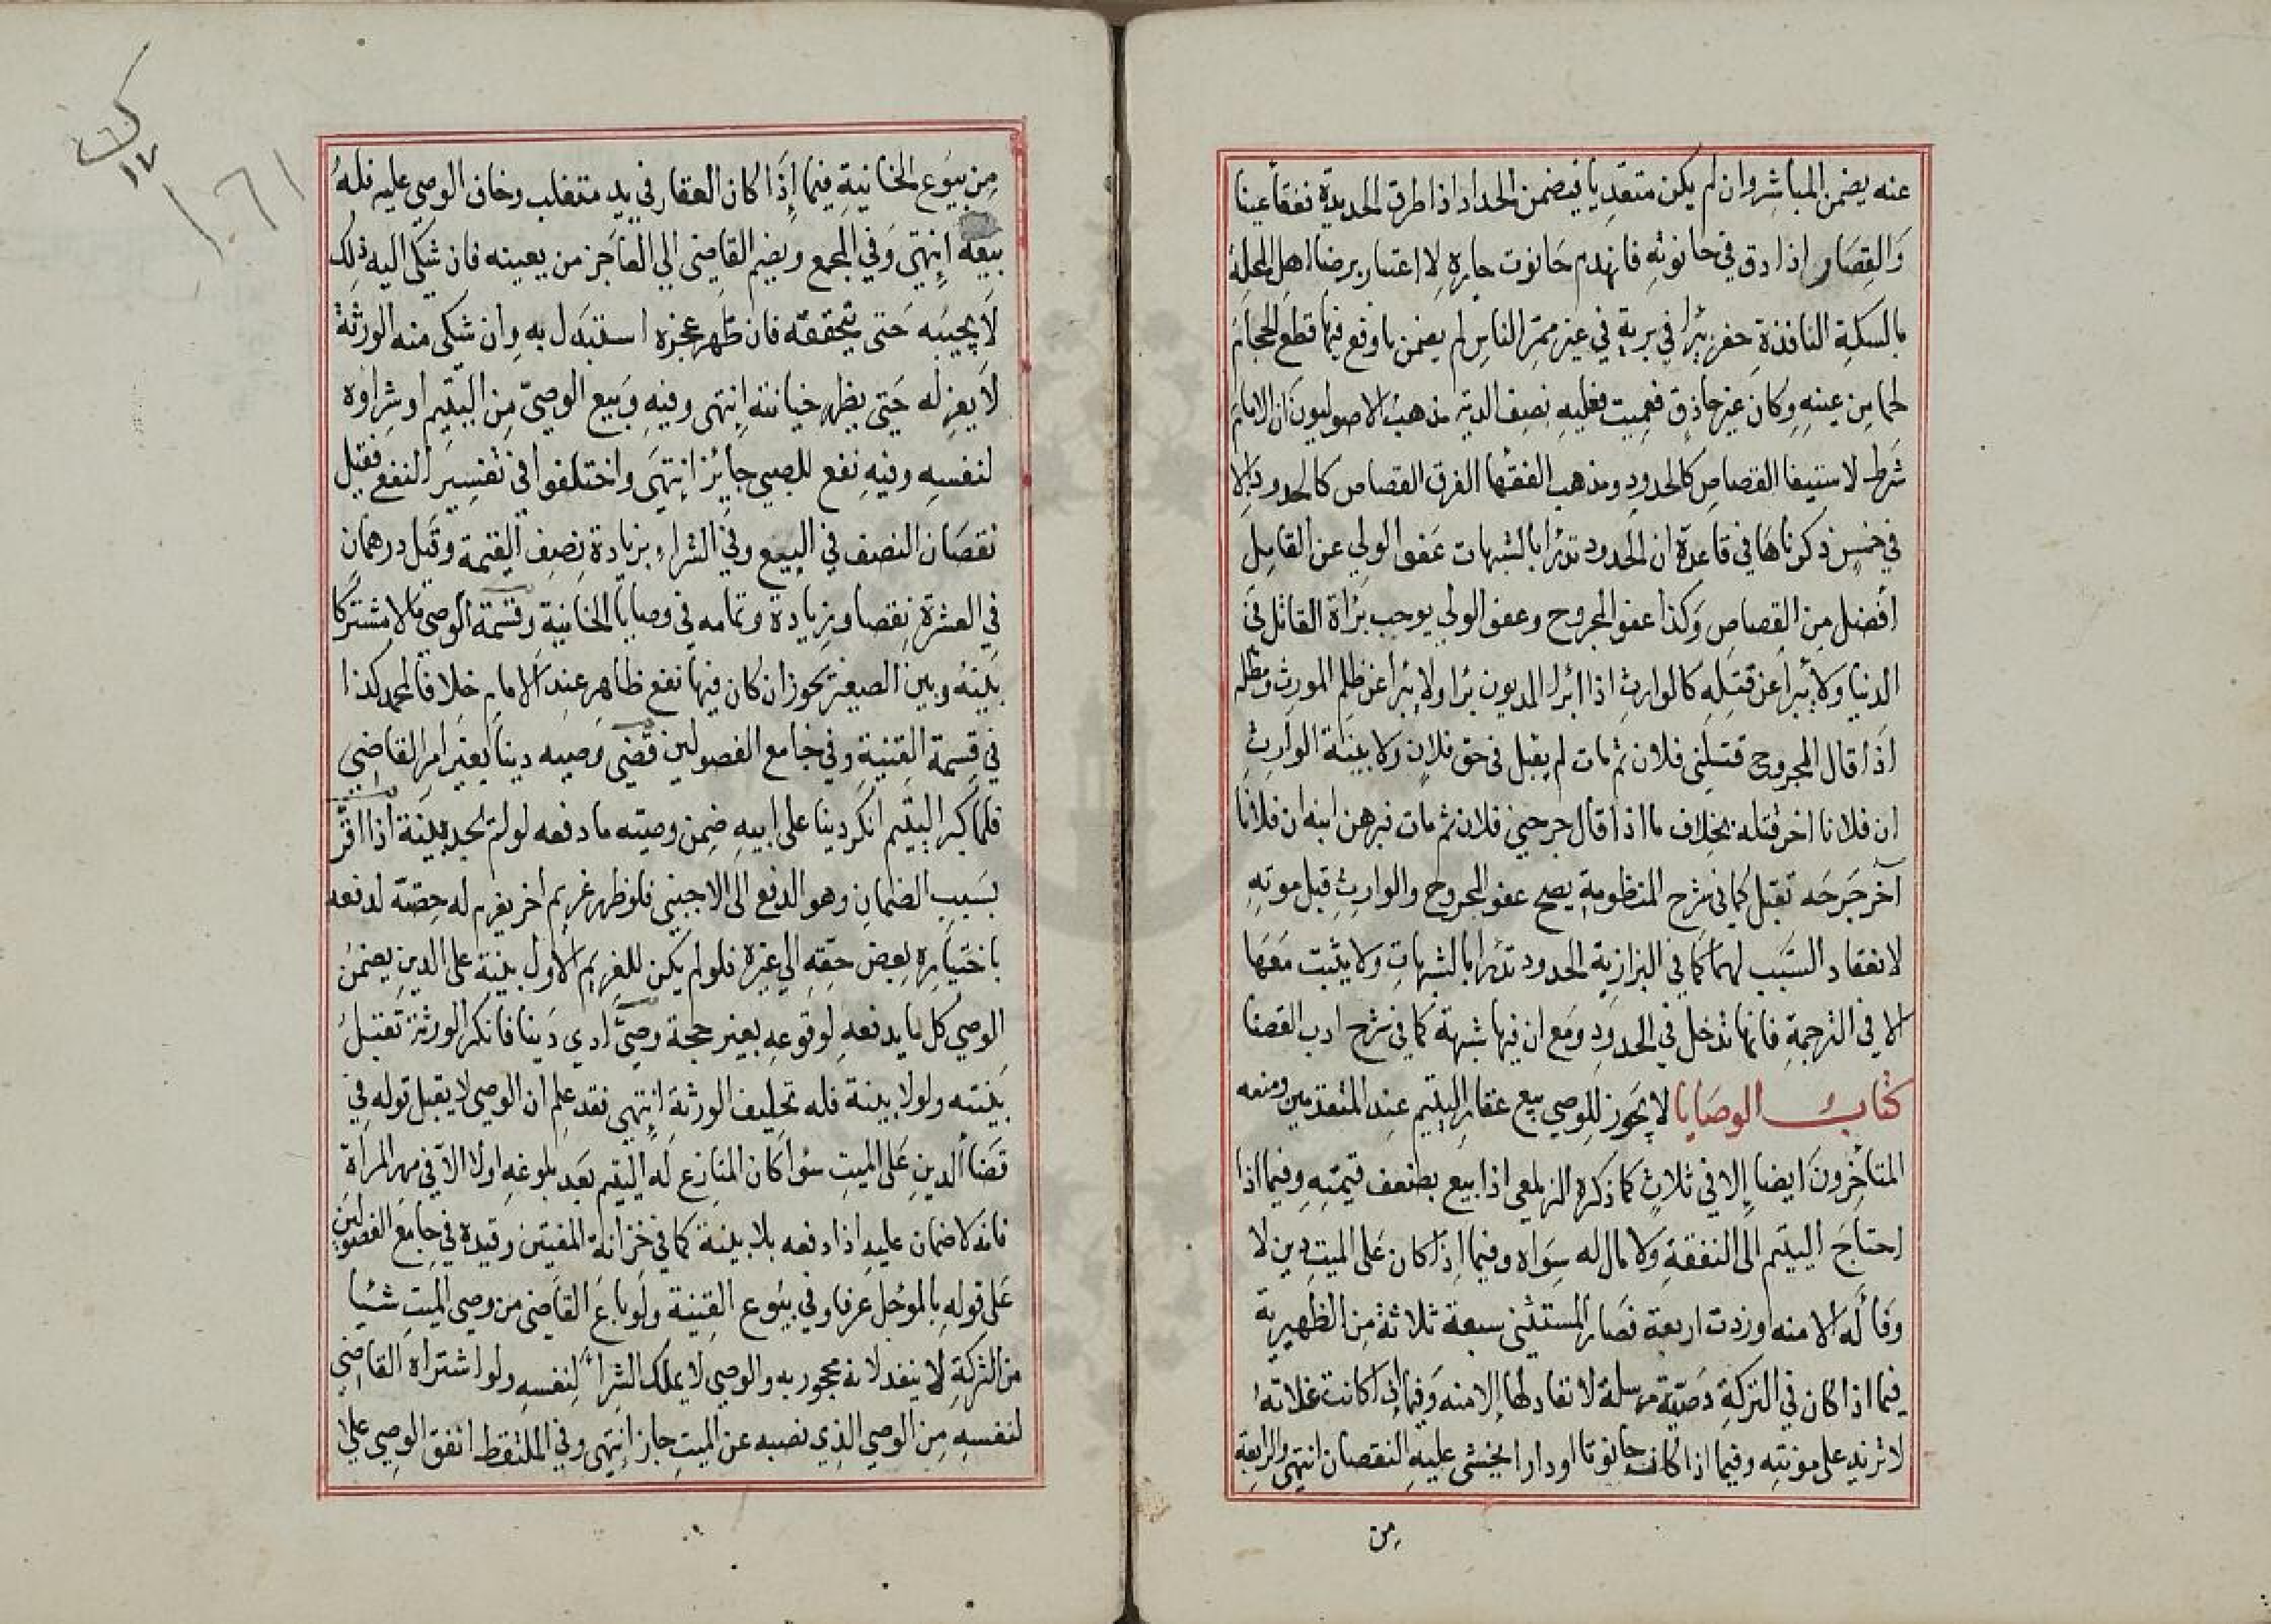 عنه يضمن المباشر وان لم يكن متعديا فيضمن الحداد اذا طرق الحديدة ففقأ عينا
والقصار اذا دق في حانوته فانهدم حانوت جاره لا اعتبار برضا اهل المحلة
بالسكة النافذة حفر بئرا في برية في غير ممر الناس لم يضمن ما وقع فيها قطع الحجام
لحما من عينه وكان غير حاذق فعميت فعليه نصف الدية مذهب الاصوليون ان الامام
شرط لاستيفا القصاص كالحدود ومذهب الفقها الفرق القصاص كالحدود الا
في خمس ذكرناها في قاعدة ان الحدود تدرا بالشبهات عفو الولي عن القاتل
أفضل من القصاص وكذا عفو المجروح وعفو الولي يوجب براة القاتل في
الدنيا ولا يبرأ عن قتله كالوارث اذا ابرا المديون برا ولا يبرا عن ظلم المورث ومطله
اذا قال المجروح قتلني فلان ثم مات لم يقبل في حق فلان ولا بينة الوارث
ان فلانا اخر قتله بخلاف ما اذا قال جرحني فلان ثم مات فبرهن ابنه ان فلانا
آخر جرحه تقبل كما في شرح المنظومة يصح عفو المجروح والوارث قبل موته
لانعقاد السبب لهما كما في البزازية الحدود تدرا بالشبهات ولا يثبت معها
الا في الترجمة فانها تدخل في الحدود ومع ان فيها شبهة كما في شرح ادب القضا
كتاب الوصايا لا يجوز للوصي بيع عقار اليتيم عند المتقدمين ومنعه
المتأخرون ايضا إلا في ثلاث كما ذكره الزيلعي اذا بيع بضعف قيمته وفيما اذا
احتاج اليتيم الى النفقة ولا مال له سواه وفيما اذا كان على الميت دين لا
وفا له الا منه وزدت اربعة فصار المستثنى سبعة ثلاثة من الظهيرية
فيما اذا كان في التركة وصية مرسلة لا نفاد لها إلا منه وفيما اذا كانت غلاته
لا تزيد على مونته وفيما اذا كان حانوتا او دارا يخشى عليه النقصان انتهى والرابعة
من
من بيوع الخانية فيما إذا كان العقار في يد متغلب وخاف الوصي عليه فله
بيعه إنتهى وفي المجمع ويضم القاضي الي العاجز من يعينه فان شكى اليه ذلك
لا يجيبه حتى يتحققه فان ظهر عجزه استبدل به وان شكى منه الورثة
لا يعزله حتى يظهر خيانته إنتهى وفيه وبيع الوصي من اليتيم او شراوه
لنفسه وفيه نفع للصبي جائز انتهى واختلفوا في تفسير النفع فقيل
نقصان النصف في البيع وفي الشراء بزيادة نصف القيمة وقيل درهمان
في العشرة نقصا وزيادة وتمامه في وصايا الخانية وقسمة الوصي مالا مشتركا
بينه وبين الصغير تجوز ان كان فيها نفع ظاهر عند الامام خلافا لمحمد كذا
في قسمة القنية وفي جامع الفصولين قضى وصيه دينا بغير امر القاضي
فلما كبر اليتيم انكر دينا على ابيه ضمن وصيته ما دفعه لو لم يجد بينة اذا اقر
بسبب الضمان وهو الدفع الى الاجنبي فلو ظهر غريم أخر يغرم له حصته لدفعه
باختياره بعض حقه الي غيره فلو لم يكن للغريم الاول بينة على الدين يضمن
الوصي كل ما يدفعه لوقوعه بغير حجة وصي ادي دينا فانكر الورثة تقبل
بينته ولو لا بينة فله تحليف الورثة إنتهى فقد علم ان الوصي لا يقبل قوله في
قضأ الدين على الميت سوا كان المنازع له اليتيم بعد بلوغه او لا الا في مهر المراة
فانه لا ضمان عليه اذا دفعه بلا بينة كما في خزانة المفتين وقيده في جامع الفصولين
على قوله بالموجل عرفا وفي بيوع القنية ولو باع القاضي من وصي الميت شيئا
من التركة لا ينفد لانه محجور به والوصي لا يملك الشرا لنفسه ولو اشتراه القاضي
لنفسه من الوصي الذي نصبه عن الميت جاز انتهى وفي الملتقط انفق الوصي على
١٧
١٦١